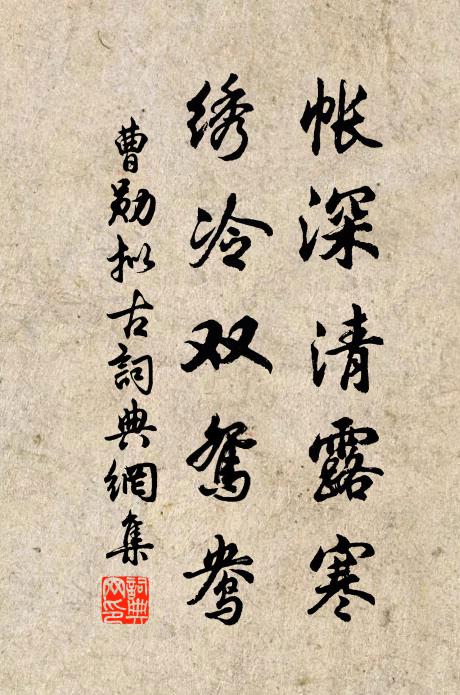 帐深清露寒
绣冷双鸳鸯
曹勋拟古詞典網集
詞典网印